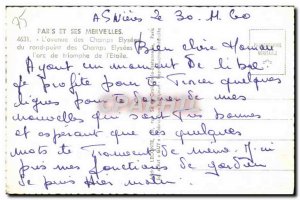 95
ASNIERES le 30.11.60
PARIS ET SES MERVEILLES.
4631. - L'avenue des Champs Elysées
du rond-point des Champs Elysées
l'arc de triomphe de l'Etoile.
Bien chère Maman
Ayant un moment de libre
je profite pour tracer quelques
lignes pour te donner de mes
nouvelles qui sont très bonnes
et espérant que ces quelques
mots te trouvent de même. J'ai
pris mes fonctions de gardien
de puis hier matin.